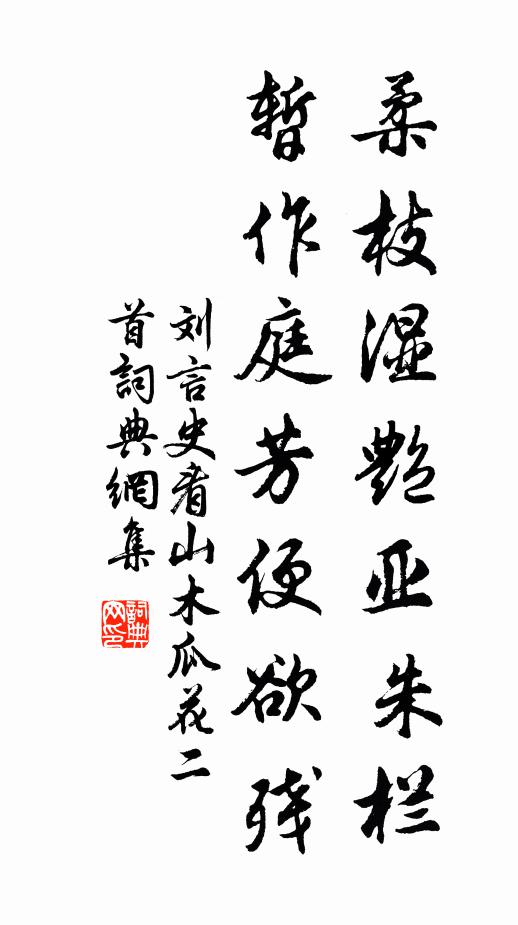 柔枝湿艷亚朱栏
暫作庭芳便欲残
刘言史看山木瓜花二
首詞典網集
詞典网印